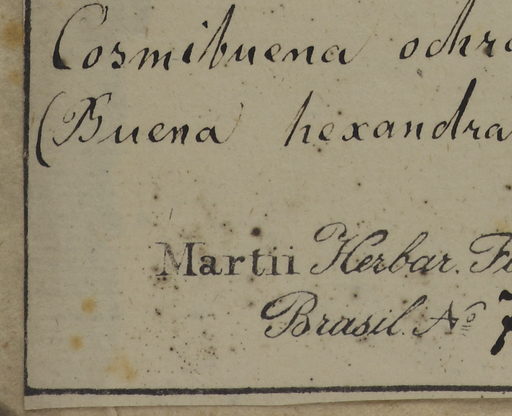 Cosmibuena ochr
(Buena hexandra
Martii Herbar. F
Brasil. No 7